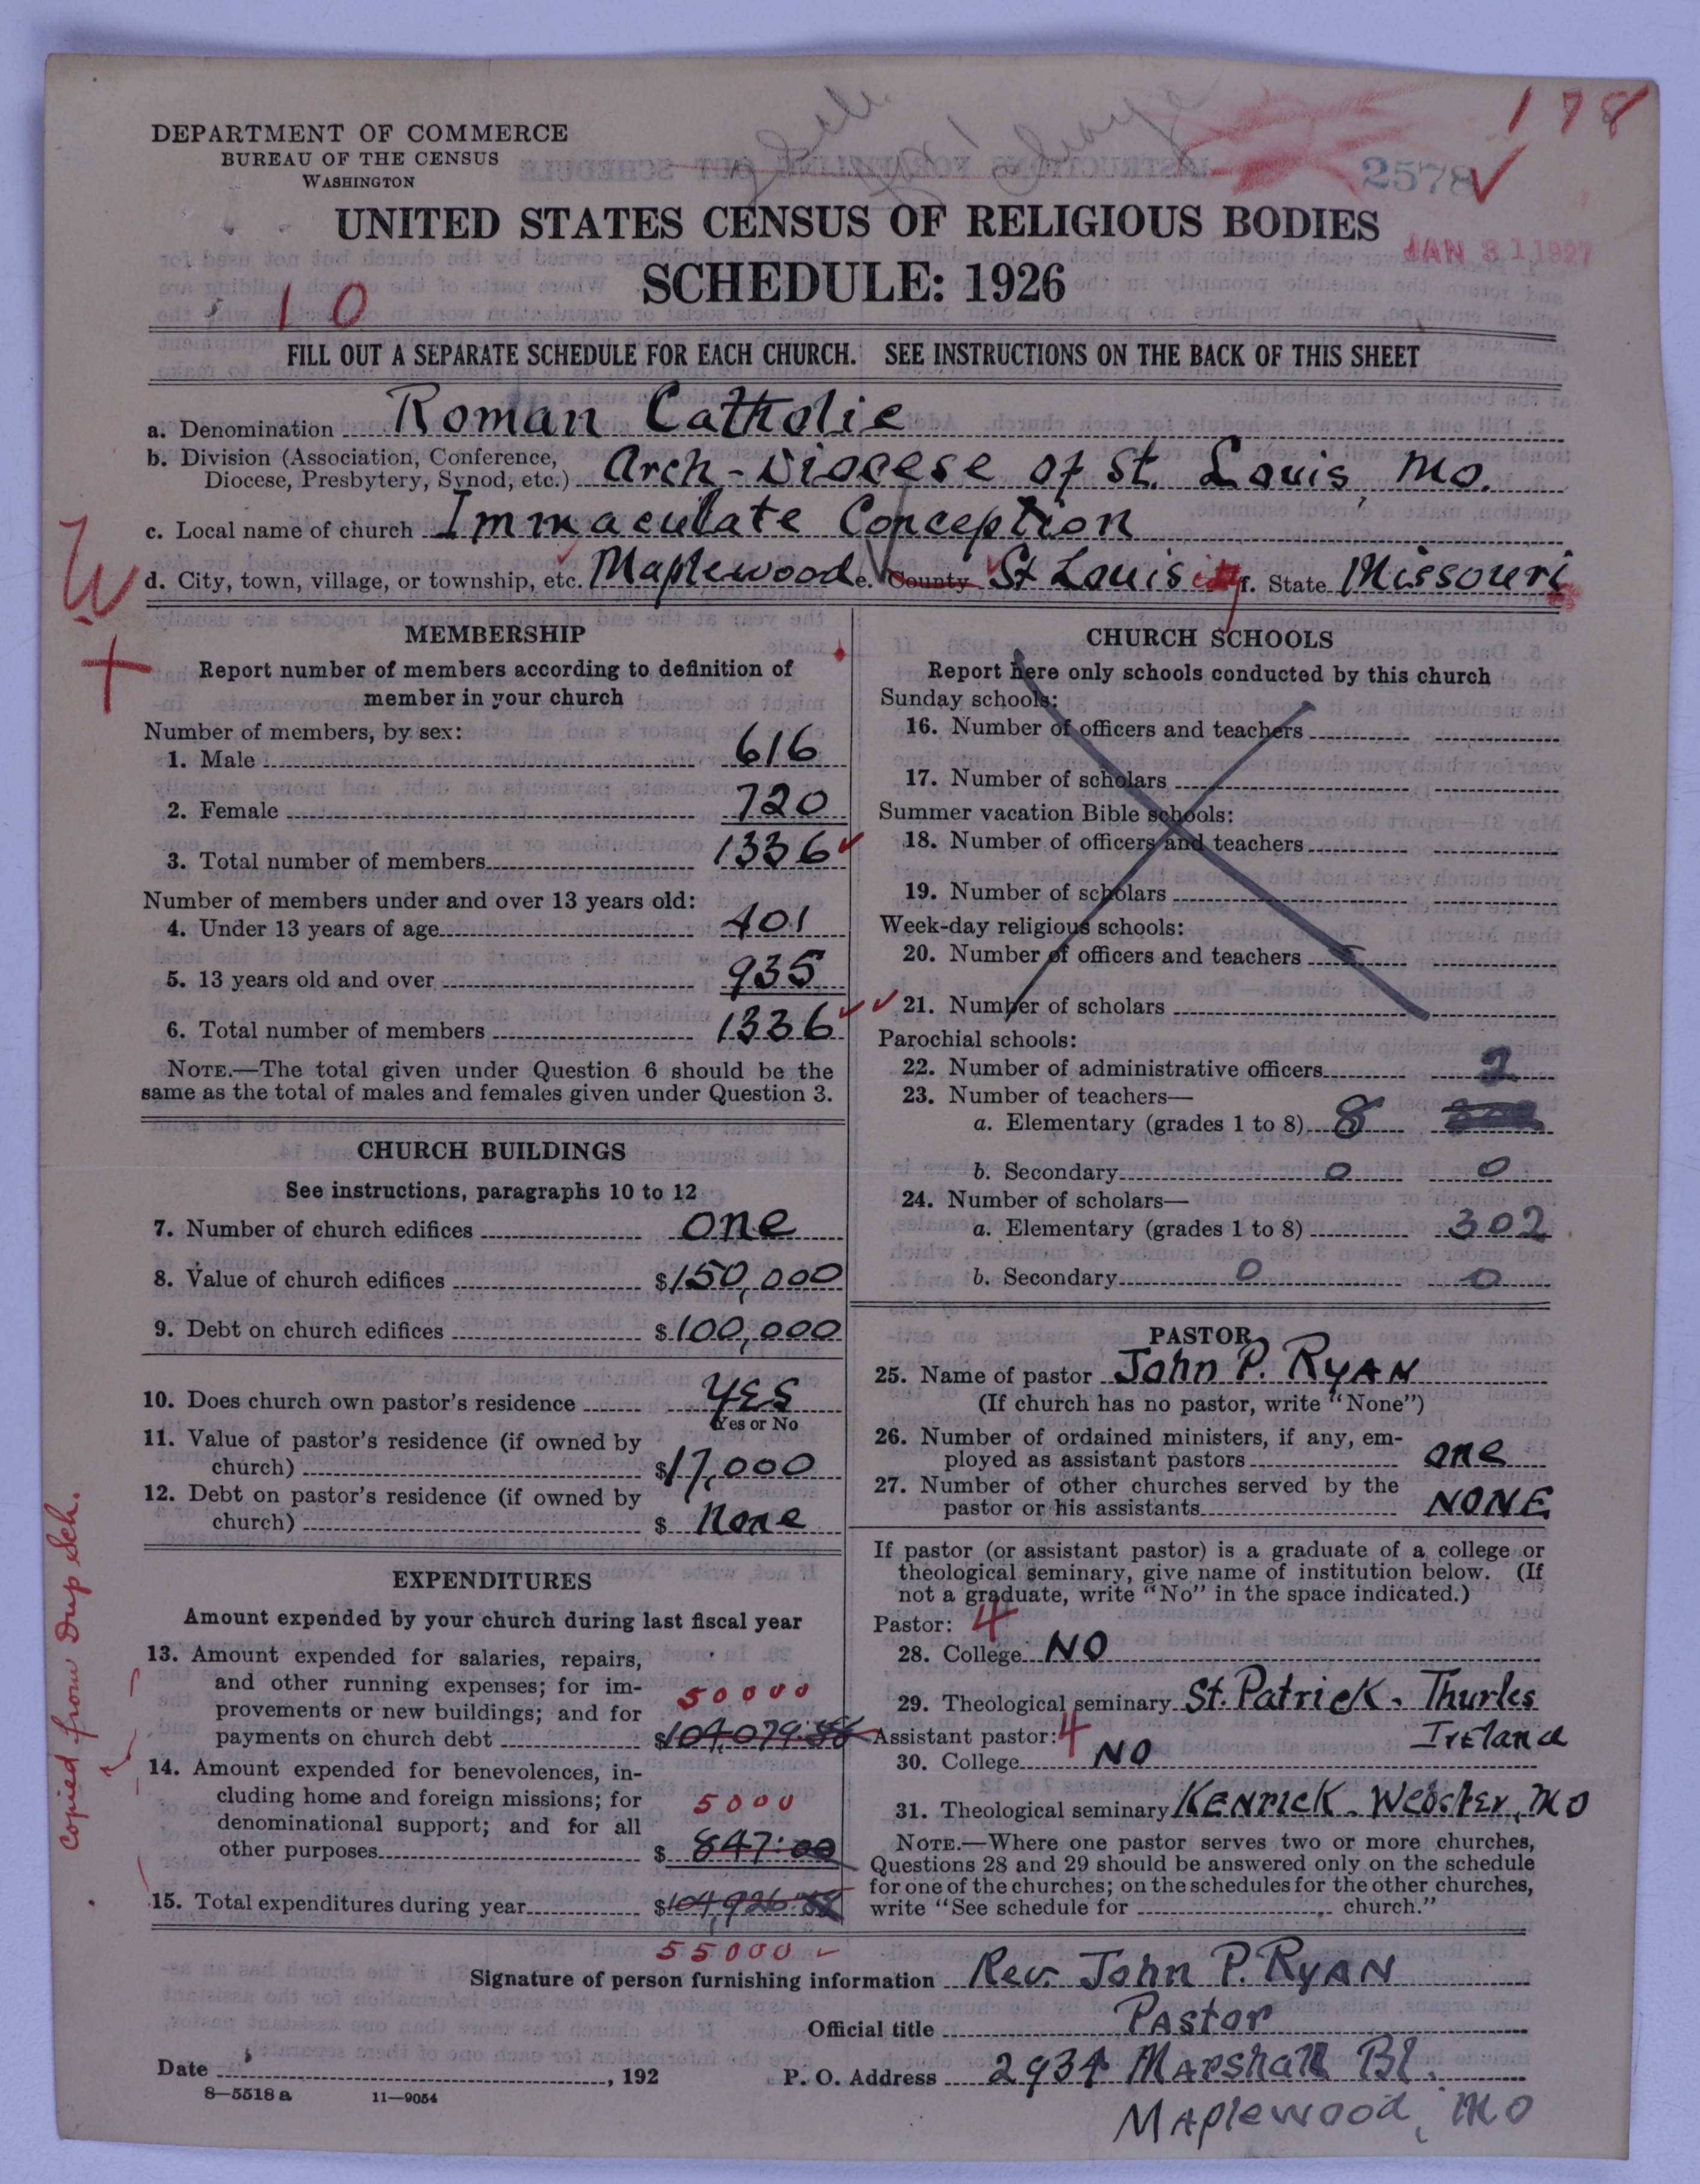 178
DEPARTMENT OF COMMERCE
BUREAU OF THE CENSUS
WASHINGTON
2578
UNITED STATES CENSUS OF RELIGIOUS BODIES
JAN 31 1927
SCHEDULE: 1926
10
FILL OUT A SEPARATE SCHEDULE FOR EACH CHURCH. SEE INSTRUCTIONS ON THE BACK OF THIS SHEET
a. Denomination Roman Catholic
b. Division (Association, Conference,
Diocese, Presbytery, Synod, etc.) Arch-Diocese of St. Louis, Mo.
c. Local name of church Immaculate Conception
d. City, town, village, or township, etc. Maplewood e. County St Louis f. State Missouri
MEMBERSHIP
Report number of members according to definition of
member in your church
Number of members, by sex:
1. Male 616
2. Female 720
3. Total number of members 1336
Number of members under and over 13 years old:
4. Under 13 years of age 401
5. 13 years old and over 935
6. Total number of members 1336
NOTE.—The total given under Question 6 should be the
same as the total of males and females given under Question 3.
CHURCH BUILDINGS
See instructions, paragraphs 10 to 12
7. Number of church edifices one
8. Value of church edifices $150,000
9. Debt on church edifices $100,000
10. Does church own pastor's residence YES
Yes or No
11. Value of pastor's residence (if owned by
church) $17,000
12. Debt on pastor's residence (if owned by
church) $ None
EXPENDITURES
Amount expended by your church during last fiscal year
13. Amount expended for salaries, repairs,
and other running expenses; for im-
provements or new buildings; and for 50000
payments on church debt $104,079.88
14. Amount expended for benevolences, in-
cluding home and foreign missions; for
denominational support; and for all 5000
other purposes $ 847:00
15. Total expenditures during year $104,926.88
55000
copied from Dup Sch.
CHURCH SCHOOLS
Report here only schools conducted by this church
Sunday schools:
16. Number of officers and teachers
17. Number of scholars
Summer vacation Bible schools:
18. Number of officers and teachers
19. Number of scholars
Week-day religious schools:
20. Number of officers and teachers
21. Number of scholars
Parochial schools:
22. Number of administrative officers 2
23. Number of teachers—
a. Elementary (grades 1 to 8) 8
b. Secondary 0 0
24. Number of scholars—
a. Elementary (grades 1 to 8) 302
b. Secondary 0 0
PASTOR
25. Name of pastor John P. RYAN
(If church has no pastor, write "None")
26. Number of ordained ministers, if any, em-
ployed as assistant pastors one
27. Number of other churches served by the
pastor or his assistants NONE
If pastor (or assistant pastor) is a graduate of a college or
theological seminary, give name of institution below. (If
not a graduate, write "No" in the space indicated.)
Pastor: 4
28. College NO
29. Theological seminary St. Patrick. Thurles
Ireland
Assistant pastor: 4
30. College NO
31. Theological seminary KENRICK. Webster, MO
NOTE.—Where one pastor serves two or more churches,
Questions 28 and 29 should be answered only on the schedule
for one of the churches; on the schedules for the other churches,
write "See schedule for church."
Signature of person furnishing information Rev. John P. RYAN
Official title Pastor
Date , 192 P. O. Address 2934 Marshall Bl.
8—5518 a 11—9054
Maplewood, MO